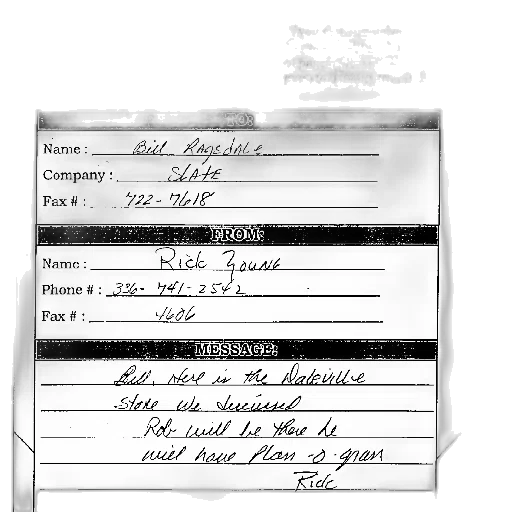 TO:
Name : Bill Ragsdale
Company : State
Fax # : 722-7618
FROM:
Name : Rick Young
Phone # : 336- 741-2542
Fax # : 4606
MESSAGE:
Bill, Here is the
store we discussed
Rob will be there he
will have Plan-o-gram
Rick